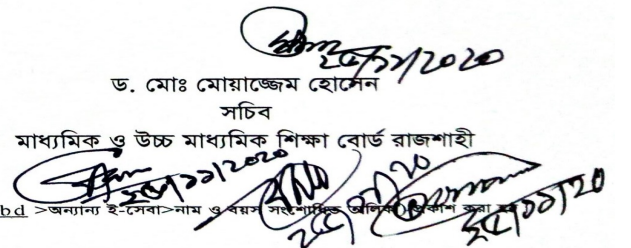 ২৫/১১/2020
ড. মোঃ মোয়াজ্জেম হোসেন
সচিব
মাধ্যমিক ও উচ্চ মাধ্যমিক শিক্ষা বোর্ড রাজশাহী
২৫/১১/2020 ২৫/১১/20 ২৫/১১/20
bd >অন্যান্য ই-সেবা>নাম ও বয়স সংশোধিত তালিকা) প্রকাশ করা হল